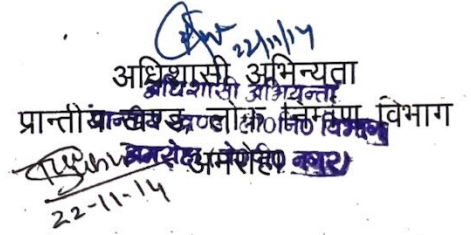 22/11/14
अधिशासी अभियन्ता
अधिशासी अभियन्ता
प्रान्तीय खण्ड लोक निर्माण विभाग
प्रान्तीय खण्ड लो०नि० विभाग
अमरोहा
अमरोहा नगर)
22-11-14